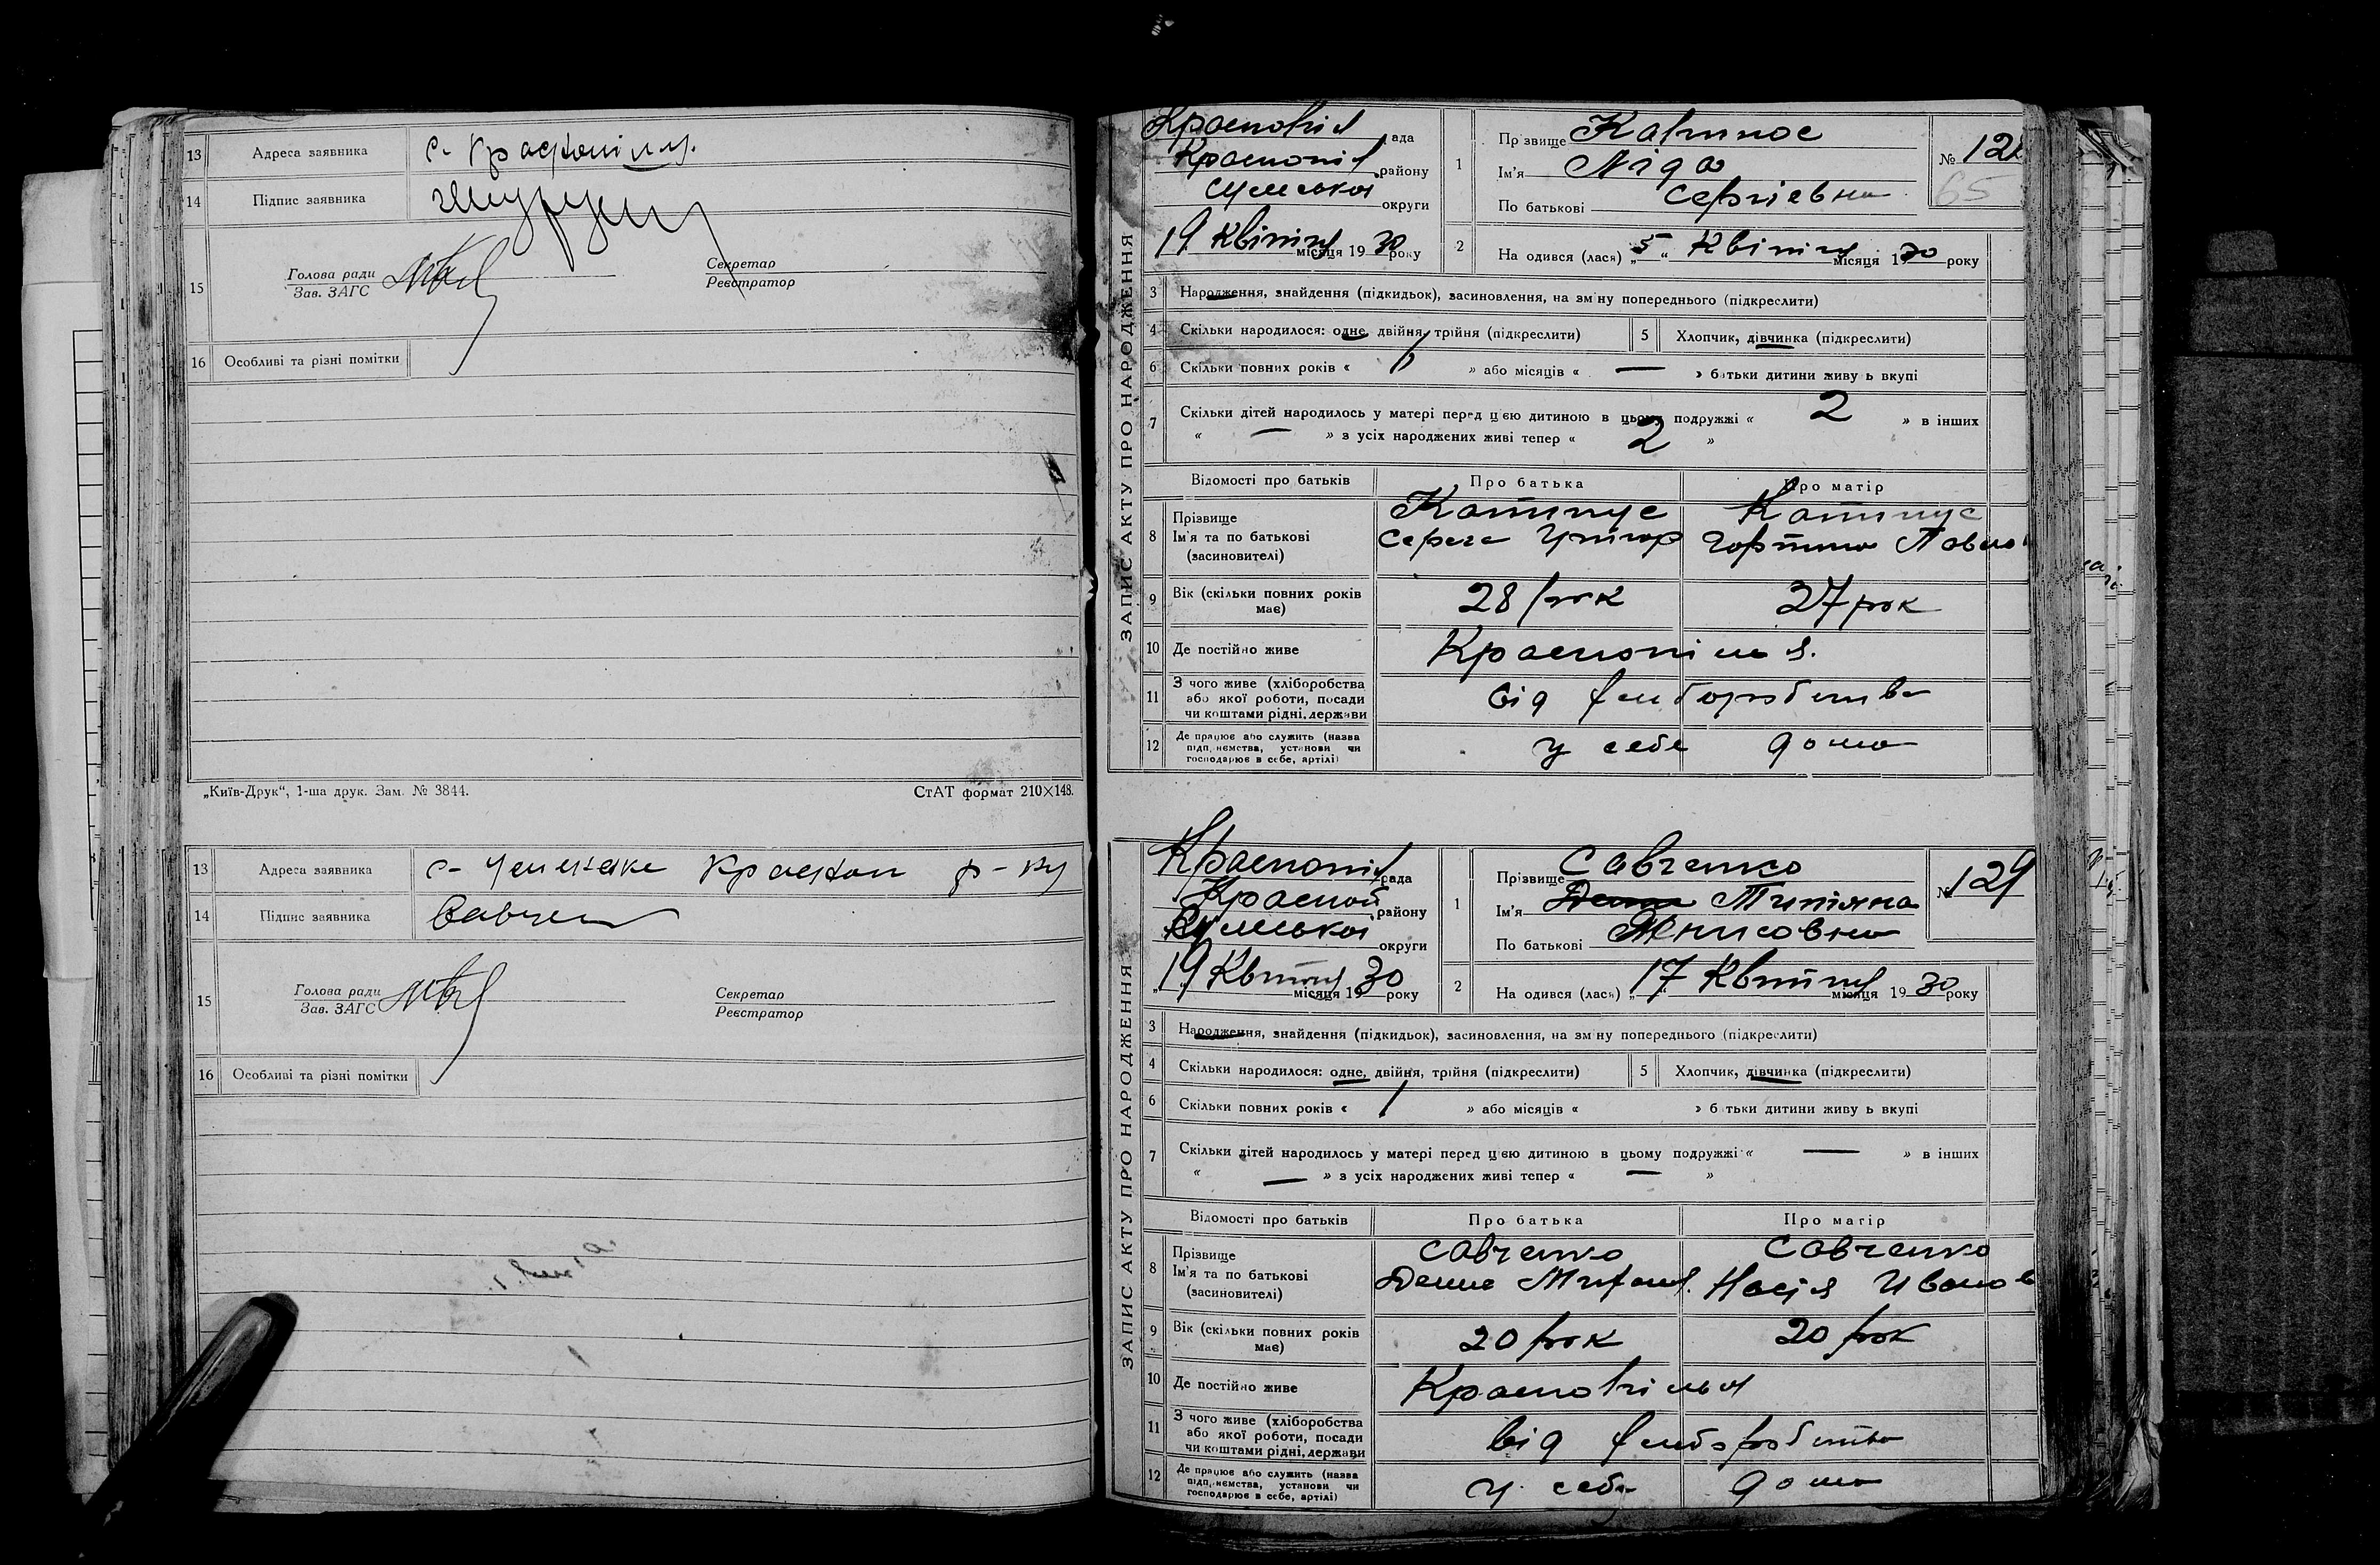 13 Адреса заявника с. Краснопілля.
14 Підпис заявника
15 Голова ради
Зав. ЗАГС
Секретар
Реєстратор
16 Особливі та різні помітки
„Київ-Друк“, 1-ша друк. Зам. № 3844.
СтАТ формат 210×148.
13 Адреса заявника с- Красноп р-ну
14 Підпис заявника Савчен
15 Голова ради
Зав. ЗАГС
Секретар
Реєстратор
16 Особливі та різні помітки
ЗАПИС АКТУ ПРО НАРОДЖЕННЯ
Краснопіл рада
Краснопіл району
Сумської округи
19 Квітня місяця 1930 року
1 Прізвище
Ім'я Ліда
По батькові Сергіевна
№ 128
65
2 На одився (лася) „5“ Квітня місяця 1930 року
3 Народження, знайдення (підкидьок), засиновлення, на зміну попереднього (підкреслити)
4 Скільки народилося: одне, двійня, трійня (підкреслити)
5 Хлопчик, дівчинка (підкреслити)
6 Скільки повних років « » або місяців « — » батьки дитини живу ь вкупі
7 Скільки дітей народилось у матері перед цією дитиною в цьому подружжі « 2 » в інших
« — » з усіх народжених живі тепер « 2 »
Відомості про батьків Про батька Про матір
8 Прізвище
Ім'я та по батькові Серге Григор Павло
(засиновителі)
9 Вік (скільки повних років має) 28 рок 27 рок
10 Де постійно живе Краснопілля.
11 З чого живе (хліборобства
або якої роботи, посади
чи коштами рідні, держави від хлиборобства
12 Де працює або служить (назва
підприємства, установи чи
господарює в себе, артілі) у себе дома
ЗАПИС АКТУ ПРО НАРОДЖЕННЯ
Краснопіл рада
Красноп району
Сумської округи
„19 Квітня місяця 1930 року
1 Прізвище Савченко
Ім'я Титяна
По батькові Денисовна
№ 129
2 На одився (лася) „17“ Квітня місяця 1930 року
3 Народження, знайдення (підкидьок), засиновлення, на зміну попереднього (підкреслити)
4 Скільки народилося: одне, двійня, трійня (підкреслити)
5 Хлопчик, дівчинка (підкреслити)
6 Скільки повних років « 1 » або місяців « » батьки дитини живу ь вкупі
7 Скільки дітей народилось у матері перед цією дитиною в цьому подружжі « — » в інших
« — » з усіх народжених живі тепер « — »
Відомості про батьків Про батька Про матір
8 Прізвище Савченко Савченко
Ім'я та по батькові Денис Настя Ивано
(засиновителі)
9 Вік (скільки повних років має) 20 рок 20 рок
10 Де постійно живе Краснопілья
11 З чого живе (хліборобства
або якої роботи, посади
чи коштами рідні, держави від хлиборобства
12 Де працює або служить (назва
підприємства, установи чи
господарює в себе, артілі) у себе дома